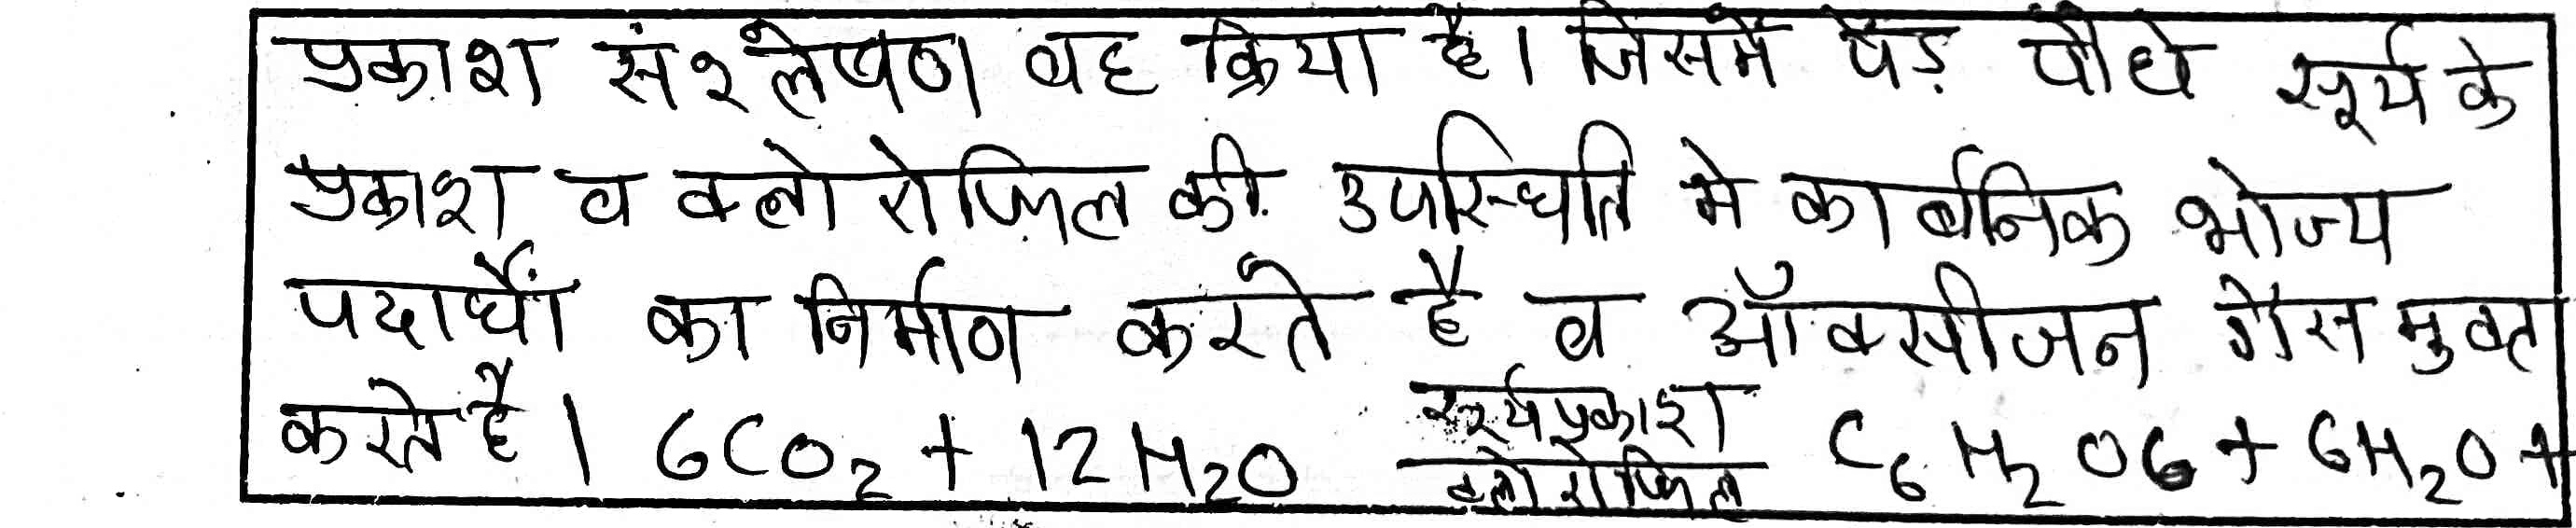 प्रकाश संश्लेषण वह क्रिया है। जिसमें पेड़ पौधे सूर्य के
प्रकाश व क्लोरोफिल की उपस्थिति मे कार्बनिक भोज्य
पदार्थों का निर्माण करते है व ऑक्सीजन गैस मुक्त
करते है। 6CO₂ + 12H₂O सूर्यप्रकाश क्लोरोफिल C₆H₂O6 + 6H₂O +